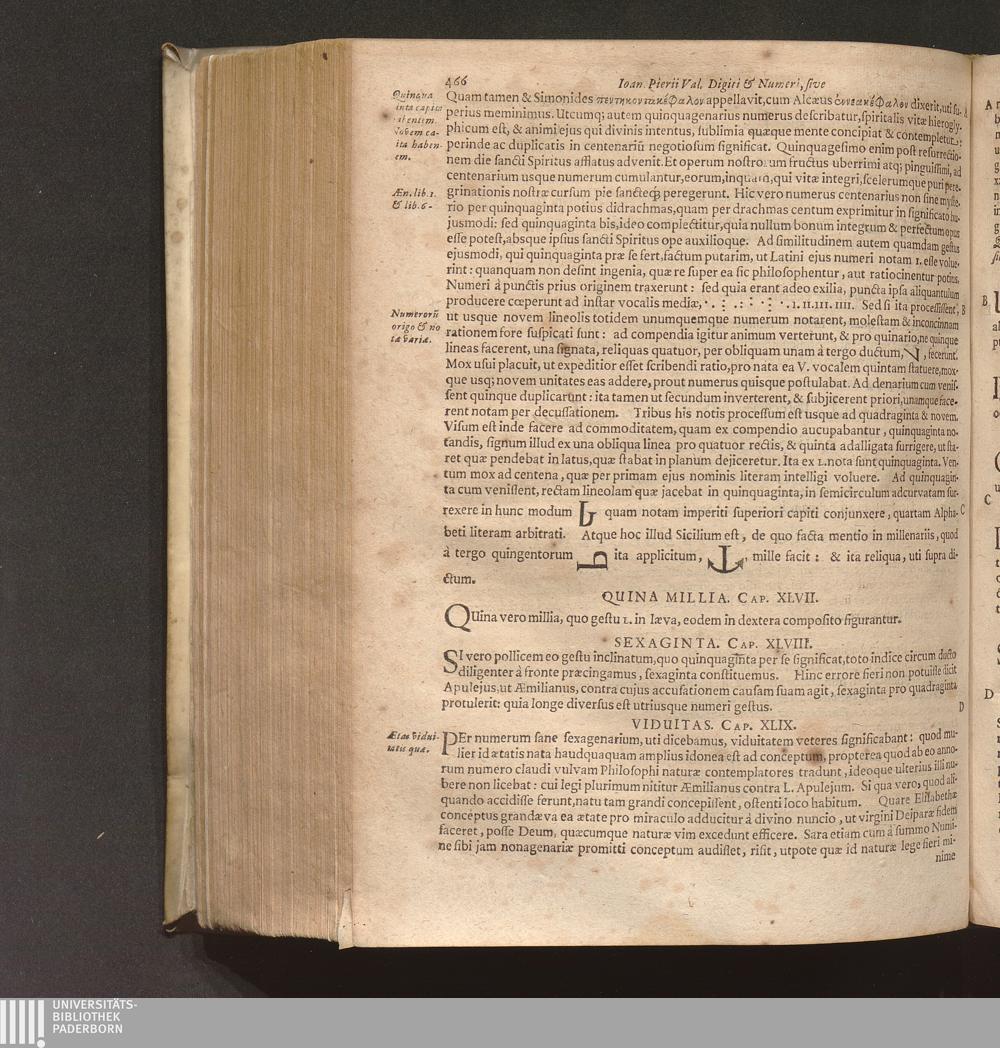 466 Ioan. Pierii Val. Digiti & Numeri, sive
Quinqua
ginta capita
habentem.
Novem ca-
pita haben-
tem.
Quam tamen & Simonides πεντηκοντακέφαλον appellavit, cum Alcæus ἐννεακέφαλον dixerit, uti su-
perius meminimus. Utcumq; autem quinquagenarius numerus describatur, spiritalis vitæ hierogly-
phicum est, & animi ejus qui divinis intentus, sublimia quæque mente concipiat & contempletur:
perinde ac duplicatis in centenariũ negotiosum significat. Quinquagesimo enim post resurrectio-
nem die sancti Spiritus afflatus advenit. Et operum nostrorum fructus uberrimi atq; pinguissimi, ad
centenarium usque numerum cumulantur, eorum, inquam, qui vitæ integri, scelerumque puri pere-
Æn. lib. 1.
& lib. 6.
grinationis nostræ cursum pie sancteq; peregerunt. Hic vero numerus centenarius non sine myste-
rio per quinquaginta potius didrachmas, quam per drachmas centum exprimitur in significato hu-
jusmodi: sed quinquaginta bis, ideo complectitur, quia nullum bonum integrum & perfectum opus
esse potest, absque ipsius sancti Spiritus ope auxilioque. Ad similitudinem autem quamdam gestus
ejusmodi, qui quinquaginta præ se fert, factum putarim, ut Latini ejus numeri notam L esse volue-
rint: quanquam non desint ingenia, quæ re super ea sic philosophentur, aut ratiocinentur potius.
Numeri à punctis prius originem traxerunt: sed quia erant adeo exilia, puncta ipsa aliquantulum
producere cœperunt ad instar vocalis mediæ, · . : .: : · : · . I. II. III. IIII. Sed si ita processissent, B
Numerorũ
origo & no
ta variæ.
ut usque novem lineolis totidem unumquemque numerum notarent, molestam & inconcinnam
rationem fore suspicati sunt: ad compendia igitur animum verterunt, & pro quinario, ne quinque
lineas facerent, una signata, reliquas quatuor, per obliquam unam à tergo ductum, V, fecerunt.
Mox usui placuit, ut expeditior esset scribendi ratio, pro nata ea V. vocalem quintam statuere, mox-
que usq; novem unitates eas addere, prout numerus quisque postulabat. Ad denarium cum venis-
sent quinque duplicarunt: ita tamen ut secundum inverterent, & subjicerent priori, unamque face-
rent notam per decussationem. Tribus his notis processum est usque ad quadraginta & novem.
Visum est inde facere ad commoditatem, quam ex compendio aucupabantur, quinquaginta no-
tandis, signum illud ex una obliqua linea pro quatuor rectis, & quinta adalligata surrigere, ut sta-
ret quæ pendebat in latus, quæ stabat in planum dejiceretur. Ita ex L. nota sunt quinquaginta. Ven-
tum mox ad centena, quæ per primam ejus nominis literam intelligi voluere. Ad quinquagin-
ta cum venissent, rectam lineolam quæ jacebat in quinquaginta, in semicirculum adcurvatam sur-
rexere in hunc modum quam notam imperiti superiori capiti conjunxere, quartam Alpha- C
beti literam arbitrati. Atque hoc illud Sicilium est, de quo facta mentio in millenariis, quod
à tergo quingentorum ita applicitum, , mille facit: & ita reliqua, uti supra di-
ctum.
QUINA MILLIA. Cap. XLVII.
QUina vero millia, quo gestu L. in læva, eodem in dextera composito figurantur.
SEXAGINTA. Cap. XLVIII.
SI vero pollicem eo gestu inclinatum, quo quinquaginta per se significat, toto indice circum ducto
diligenter à fronte præcingamus, sexaginta constituemus. Hinc errore fieri non potuisse dicit
Apulejus, ut Æmilianus, contra cujus accusationem causam suam agit, sexaginta pro quadraginta
protulerit: quia longe diversus est utriusque numeri gestus. D
VIDUITAS. Cap. XLIX.
Ætas vidui-
tatis quæ.
PEr numerum sane sexagenarium, uti dicebamus, viduitatem veteres significabant: quod mu-
lier id ætatis nata haudquaquam amplius idonea est ad conceptum, propterea quod ab eo anno-
rum numero claudi vulvam Philosophi naturæ contemplatores tradunt, ideoque ulterius illi nu-
bere non licebat: cui legi plurimum nititur Æmilianus contra L. Apulejum. Si qua vero, quod ali-
quando accidisse ferunt, natu tam grandi concepissent, ostenti loco habitum. Quare Elisabethæ
conceptus grandæva ea ætate pro miraculo adducitur à divino nuncio, ut virgini Deiparæ fidem
faceret, posse Deum, quæcumque naturæ vim excedunt efficere. Sara etiam cum à summo Numi-
ne sibi jam nonagenariæ promitti conceptum audisset, risit, utpote quæ id naturæ lege fieri mi-
nime
UNIVERSITÄTS-
BIBLIOTHEK
PADERBORN